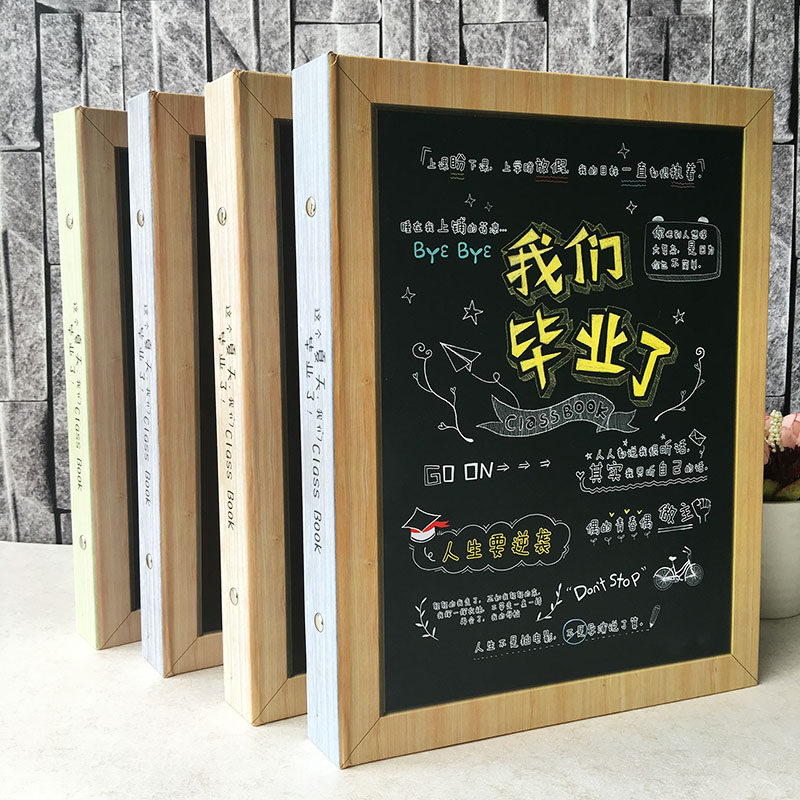 「上课盼下课，上学盼放假，我的目标一直都很执着。」
睡在我上铺的兄弟...
BYE BYE
我们
毕业了
CLASS BOOK
你没别人想得
大复杂，是因为
你也不简单。
GO ON→→→
人人都说我很听话，
其实我只听自己的话。
偶的青春偶做主
人生要逆袭
"Don't STOP"
人生不是拍电影，不是导演说了算。
这个夏天，我们Class Book
毕业了！
这个夏天，我们Class Book
毕业了！
这个夏天，我们Class Book
毕业了！
这个夏天，我们Class Book
毕业了！